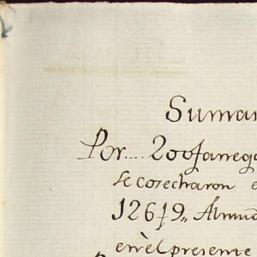 Sumar
Por.... 200 fanega
se cosecharon e
en el presente